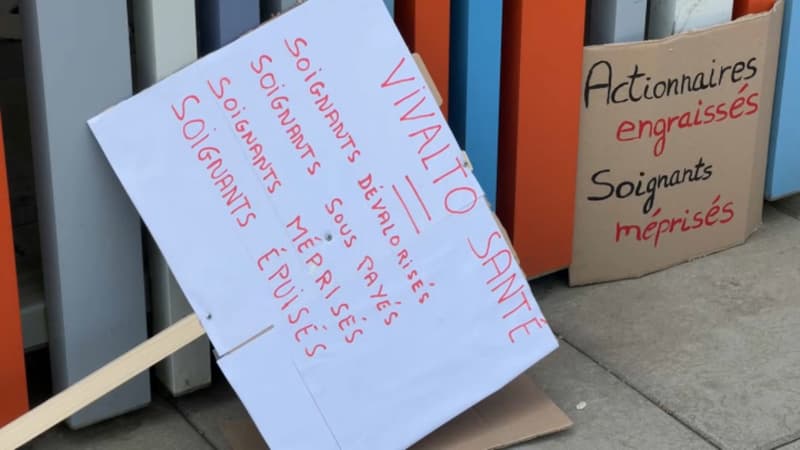 VIVALTO SANTÉ
=
SOIGNANTS DÉVALORISÉS
SOIGNANTS SOUS PAYÉS
SOIGNANTS MÉPRISÉS
SOIGNANTS ÉPUISÉS
Actionnaires
engraissés
Soignants
méprisés